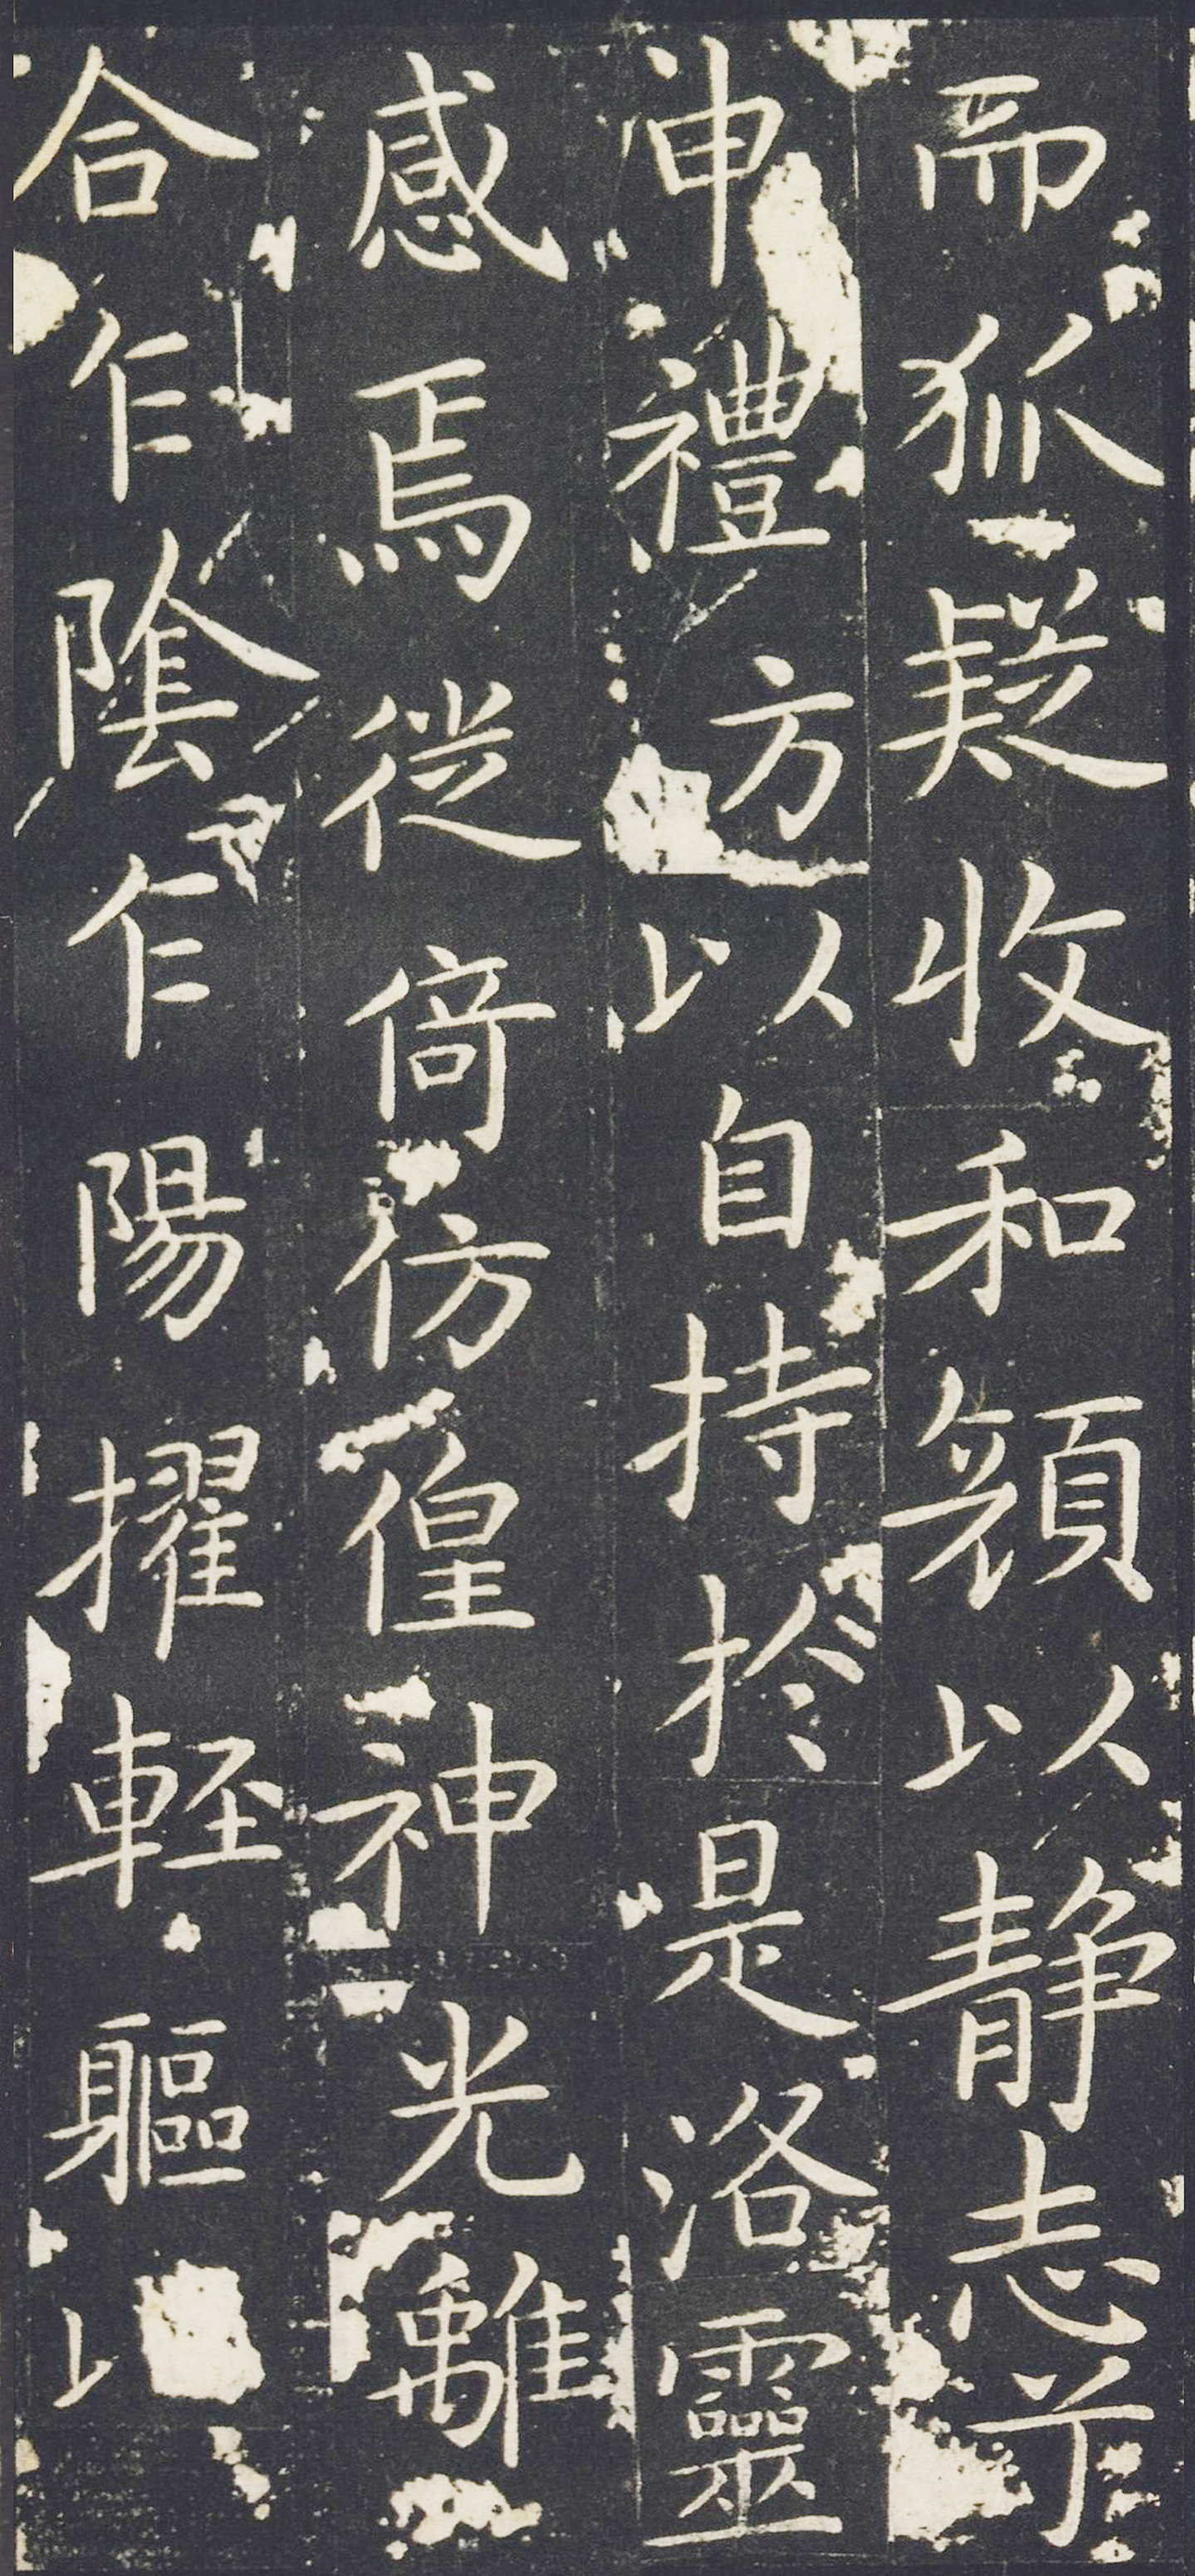 而狐疑收和顔以静志兮
申禮方以自持於是洛靈
感焉徙倚彷徨神光離
合乍陰乍陽擢輕軀以